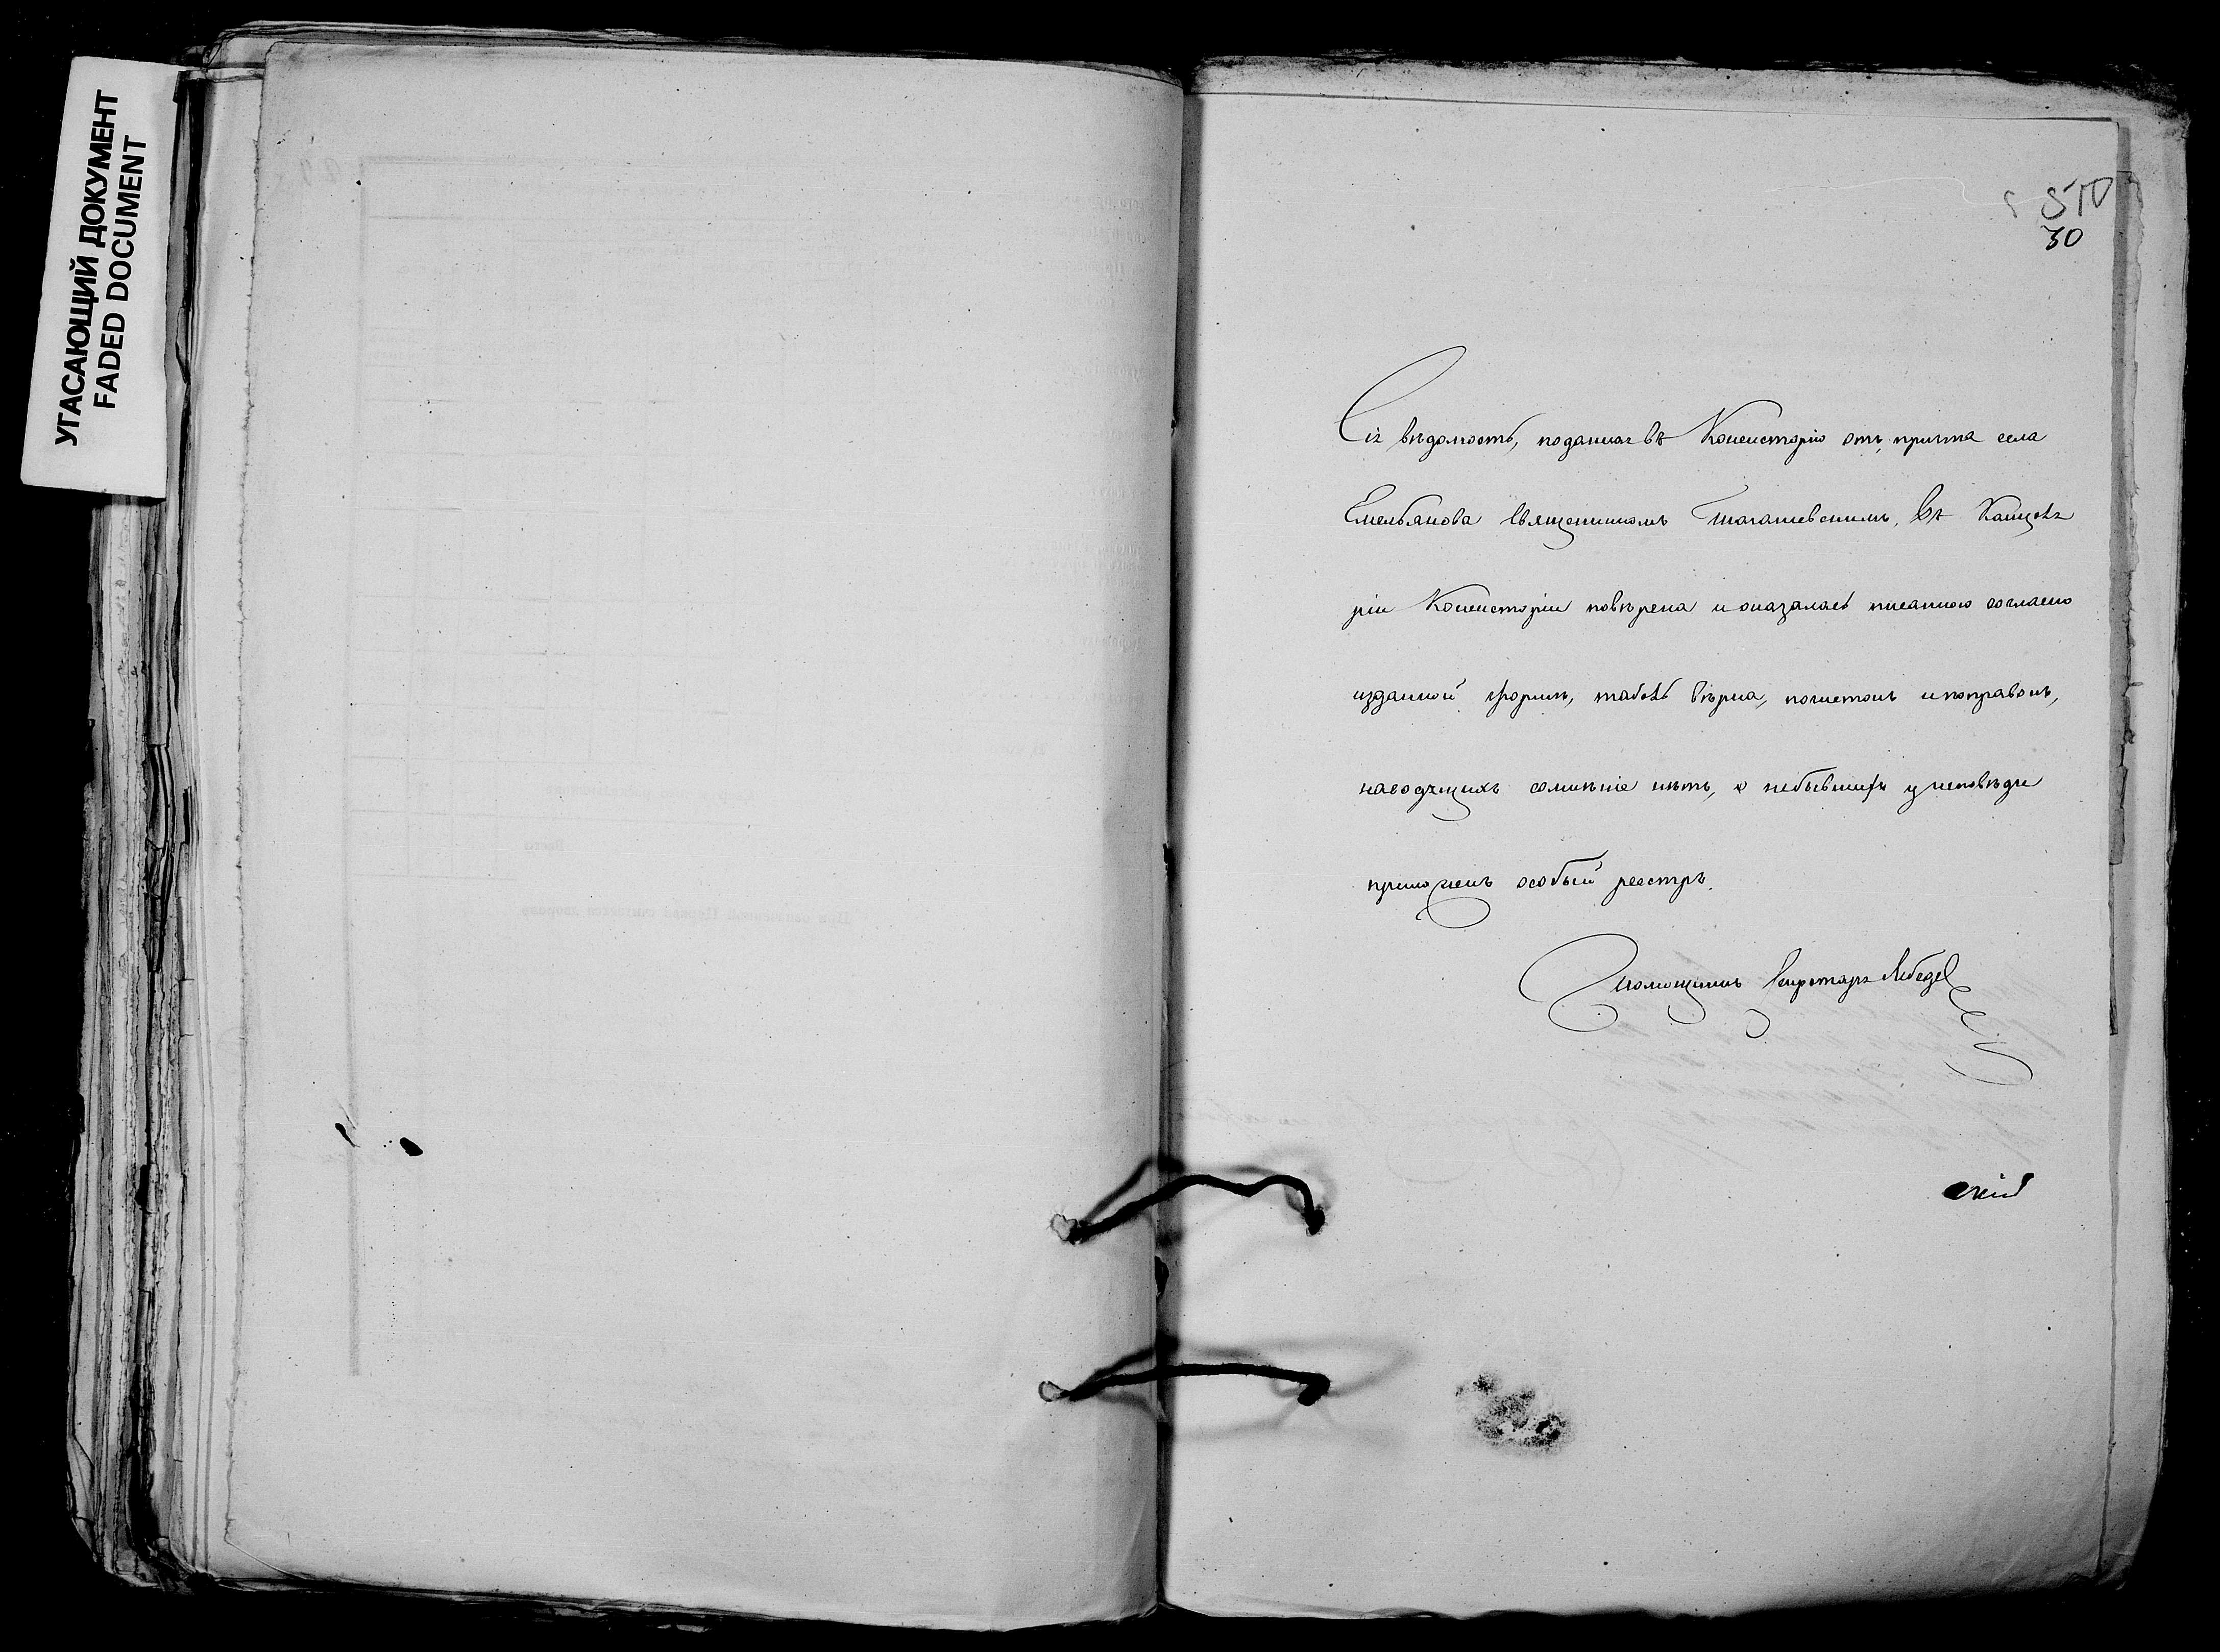 УГАСАЮЩИЙ ДОКУМЕНТ
FADED DOCUMENT
510
30
Сія вѣдомость, поданная въ Консисторію отъ причта села
Емельянова Священникомъ Въ Канцеля
ріи Консисторіи повѣрена и оказалась писанною согласно
изданной формѣ, табель вѣрна, почистокъ и поправокъ,
наводящихъ сомнѣніе нѣтъ, о небывшихъ у исповѣди
приложенъ особый реестръ.
Помощникъ Секретаря Лебедев